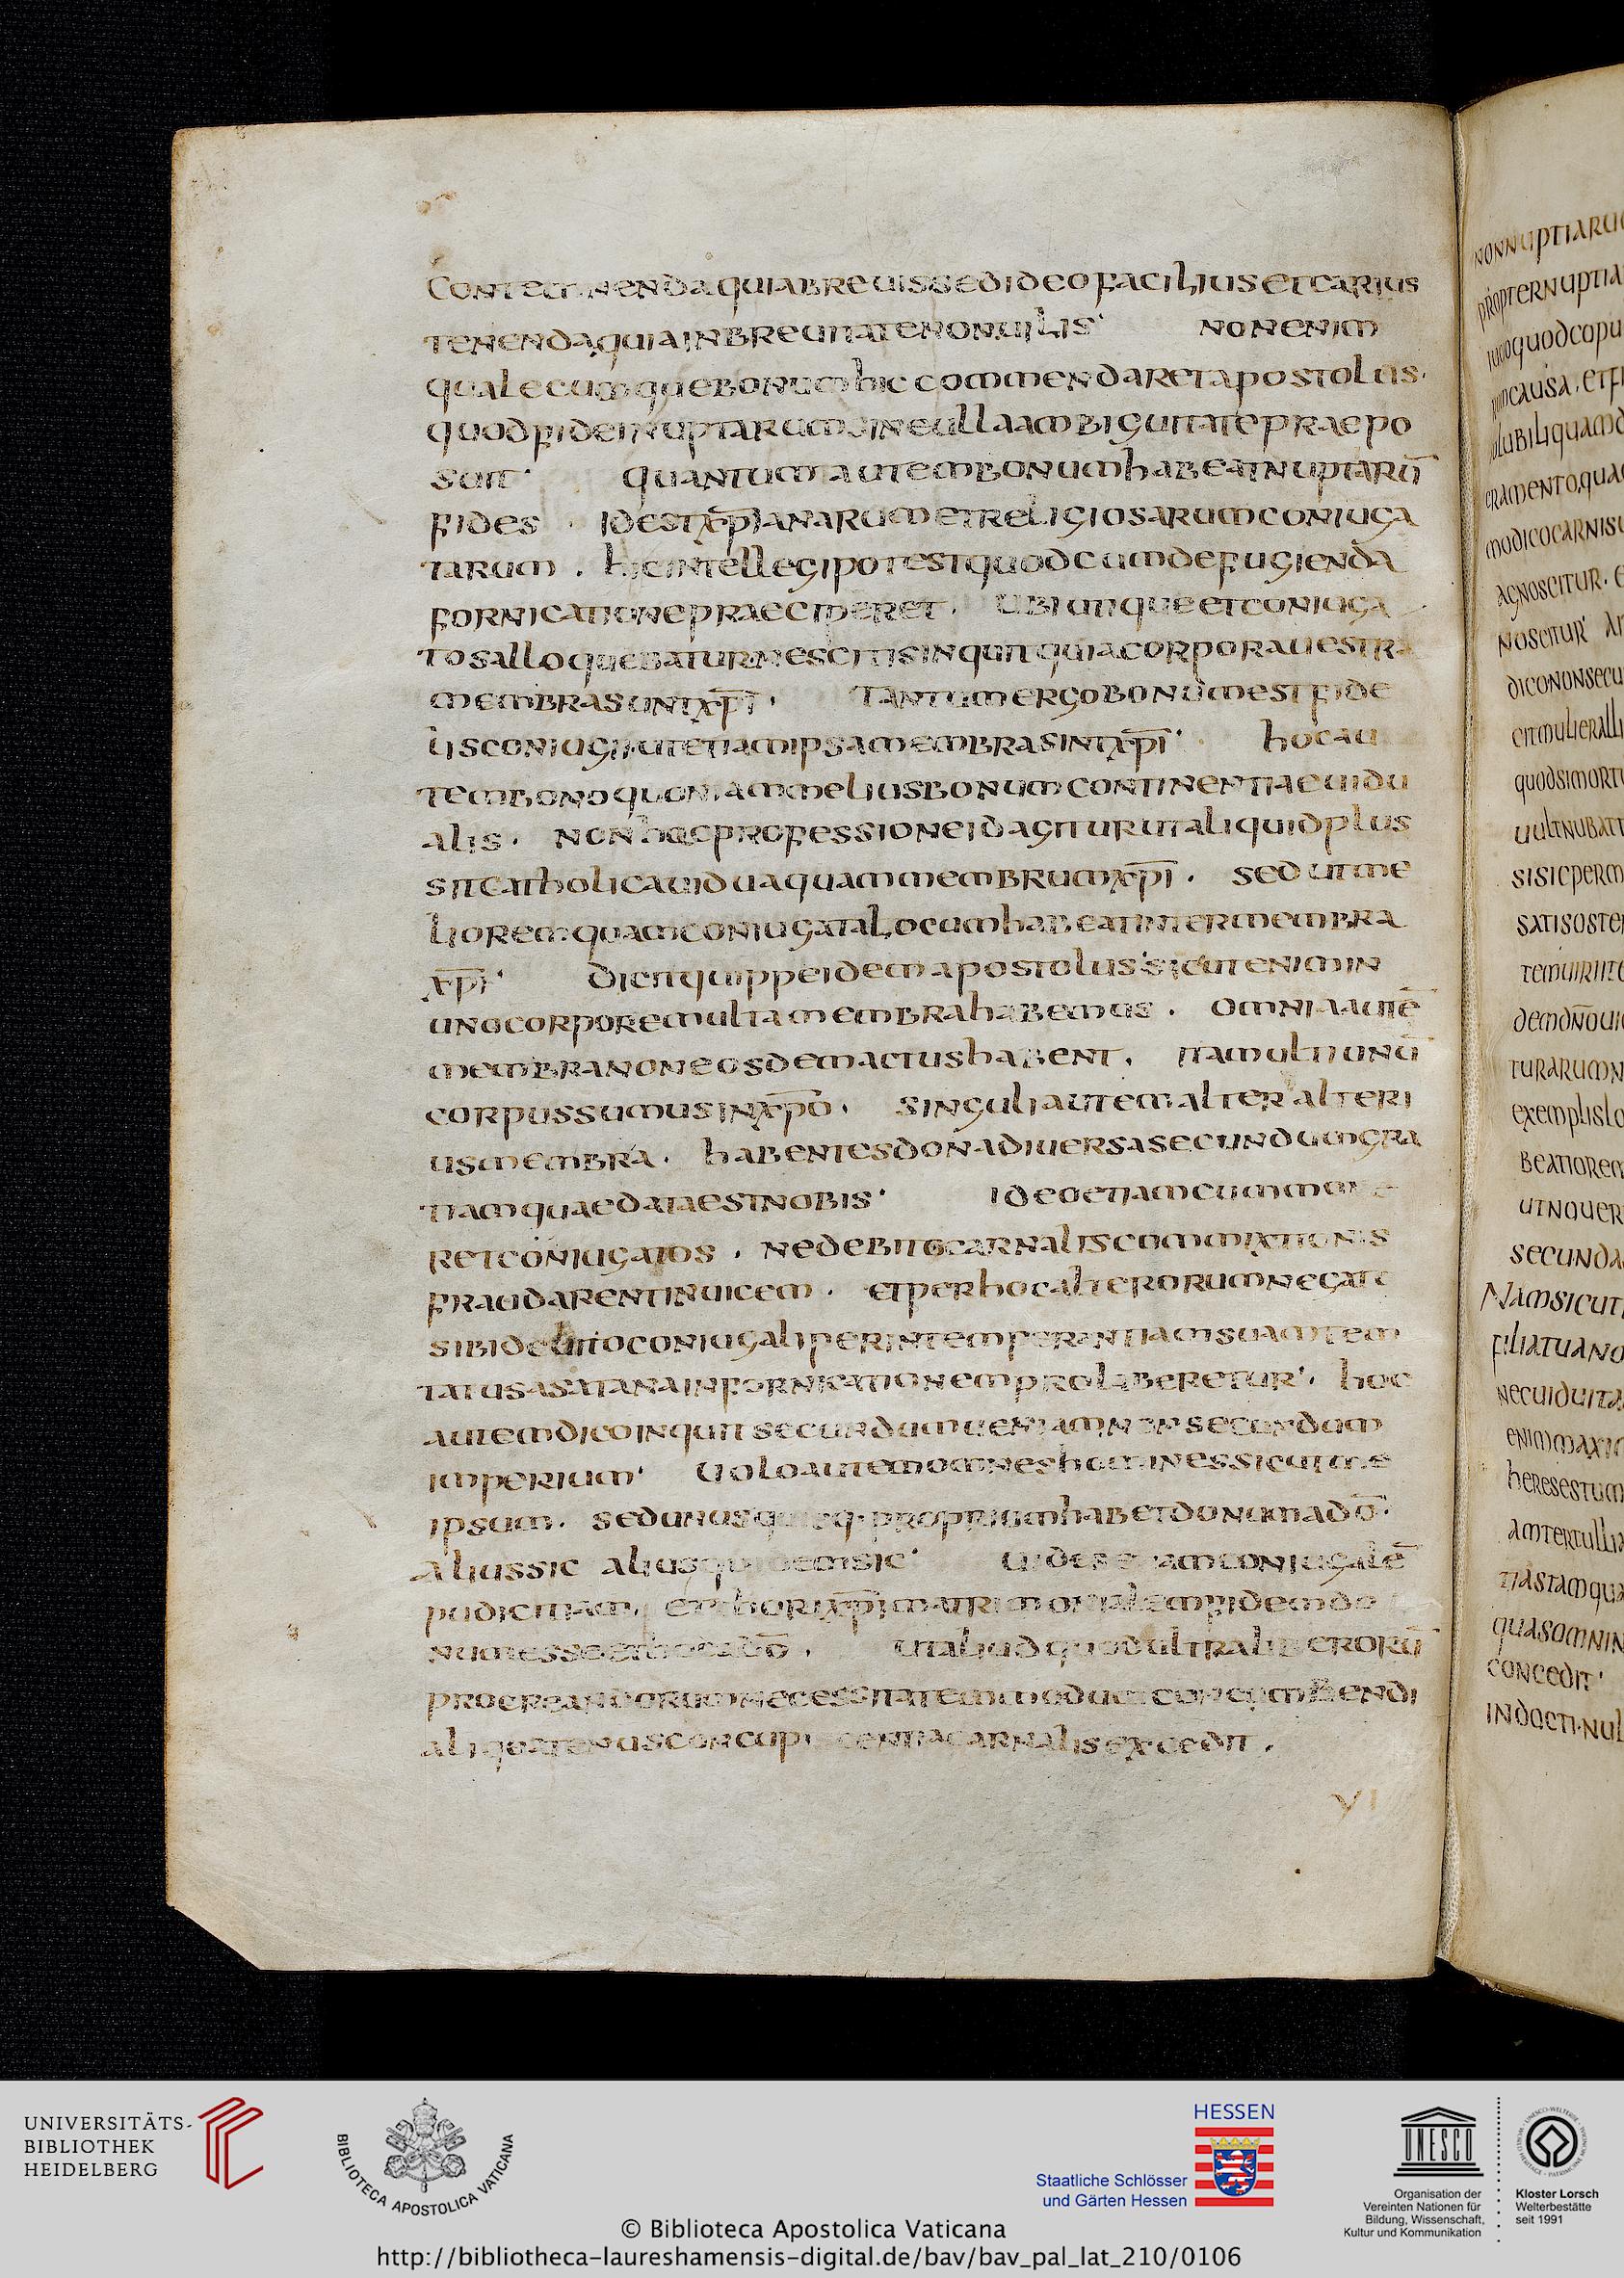 Contemnenda quia breuis sed ideo facilius et carius
tenenda quia in breuitate non uilis· non enim
qualecumque bonum hic commendaret apostolus·
quod fidei nuptarum sine ulla ambiguitate praepo
suit· quantum autem bonum habeat nuptarū
fides · Id est xp̄ianarum et religiosarum coniuga
tarum · hic intellegi potest quod cum de fugienda
fornicatione praeciperet · Ubi utique et coniuga
tos alloquebatur· nescitis inquit quia corpora uestra
membra sunt xp̄i · Tantum ergo bonum est fide
lis coniugii· ut etiam ipsa membra sint xp̄i· hoc au
tem bono quoniam melius bonum continentiae uidu
alis · non hac professione id agitur ut aliquid plus
sit catholica uidua quam membrum xp̄i · sed ut me
liorem quam coniugata locum habeat inter membra
xp̄i· dicit quippe idem apostolus· sicut enim in
uno corpore multa membra habemus · Omnia autē
membra non eosdem actus habent · ita multi unū
corpus sumus in xp̄o · singuli autem alter alteri
us membra · habentes dona diuersa secundum gra
tiam quae data est nobis· Ideo etiam cum mone
ret coniugatos · ne debito carnalis commixtionis
fraudarent inuicem · et per hoc alter eorum negato
sibi debito coniugali per intemperantiam suam tem
tatus a satana in fornicationem prolaberetur· hoc
autem dico inquit secundum ueniam non secundum
imperium· Uolo autem omnes homines sicut me
ipsum · sed unusquisq· proprium habet donum a dō·
alius sic alius quidem sic· Uides etiam coniugalē
pudicitiam · et thori xp̄i matrimonialem fidem do
num esse et hoc a dō · ut aliud quod ultra liberorū
procreandorum necessitatem modum concumbendi
aliquatenus concupiscentia carnalis excedit ·
VI
nonnuptiaru
propternuptia
quodcopu
causa · et f
lubiliquam
cramentoqua
modicocarnis
agnoscitur · e
noscitur
dicononsecu
eritmulieralli
quodsimort
uultnubat
sisicperm
satisoste
temuirii
turarum
exemplislo
beatiorem
utnouer
secunda
Namsicut
filiatuano
necuiduita
enimmaxi
heresestum
amtertullia
tiastamqua
quasomnin
concedit·
indoctinul
UNIVERSITÄTS-
BIBLIOTHEK
HEIDELBERG
BIBLIOTECA APOSTOLICA VATICANA
HESSEN
Staatliche Schlösser
und Gärten Hessen
UNESCO
Organisation der
Vereinten Nationen für
Bildung, Wissenschaft,
Kultur und Kommunikation
Kloster Lorsch
Welterbestätte
seit 1991
© Biblioteca Apostolica Vaticana
http://bibliotheca-laureshamensis-digital.de/bav/bav_pal_lat_210/0106